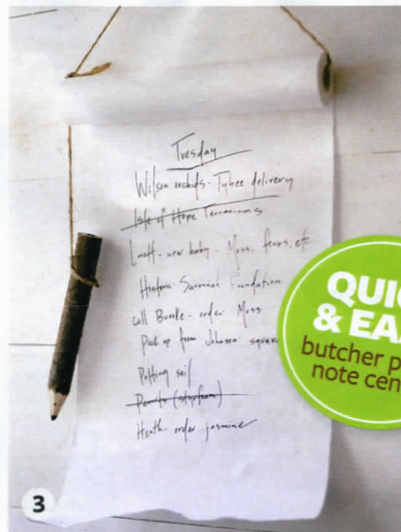 Tuesday
Wilson orchids - Tybee delivery
Isle of Hope Terrariums
new baby - Moss, ferns, etc
Historic Savannah Foundation
call Brooke - order Moss
Pick up from Johnson square
Potting soil
Heath - order jasmine
QUIC
& EA
butcher p
note cen
3